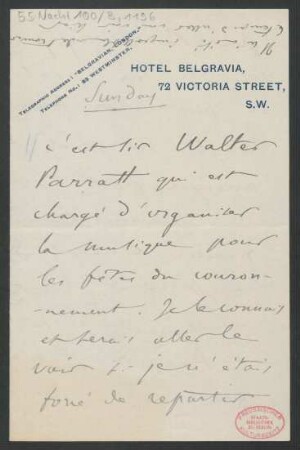 55 Nachl 100/B, 1196
TELEGRAPHIC ADDRESS: "BELGRAVIAN, LONDON."
TELEPHONE NO.: 99 WESTMINSTER.
HOTEL BELGRAVIA,
72 VICTORIA STREET,
S.W.
Sunday
c'est Sir Walter
Parratt qui est
chargé d'organiser
la musique pour
les fêtes du couron-
nement. Je le connais
et serais aller le
voir si je n'étais
forcé de repartir